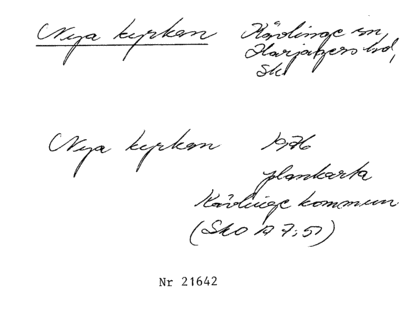 Nya kyrkan Kävlinge sn,
Harjagers hd,
Sk
Nya kyrkan 1976
plankarta
Kävlinge kommun
(Sko 17 7:51)
Nr 21642